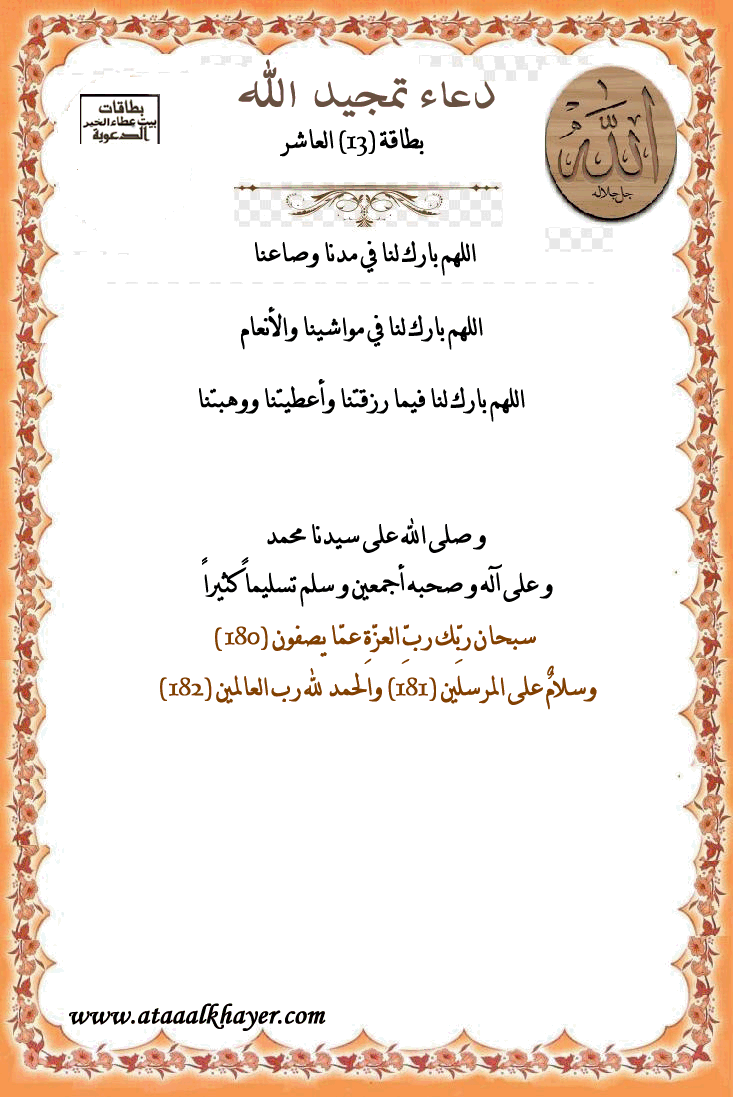 دعاء تمجيد الله
بطاقة (13) العاشر
بطاقات
بيت عطاء الخير
الدعوية
الله
جل جلاله
اللهم بارك لنا في مدنا وصاعنا
اللهم بارك لنا في مواشينا والأنعام
اللهم بارك لنا فيما رزقتنا وأعطيتنا ووهبتنا
وصلى الله على سيدنا محمد
وعلى آله وصحبه أجمعين وسلم تسليماً كثيراً
سبحان ربِّك ربِّ العزّةِ عمّا يصفون (180)
وسلامٌ على المرسلين (181) والحمد لله رب العالمين (182)
www.ataaalkhayer.com